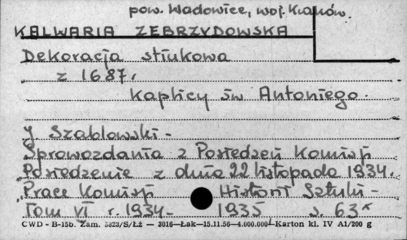 pow. Wadowice, woj. Kraków.
KALWARIA ZEBRZYDOWSKA
Dekoracja stiukowa
z 1687.
Kaplicy św Antoniego.
J. Szablowski -
Sprawozdania z Posiedzeń Komisji
Posiedzenie z dnia 22 listopada 1934.
Prace Komisji Historii Sztuki -
Tom VI r. 1934 - 1935 s. 63*
CWD - B-15b. Zam. 5823/S/Łż — 3016—Łak—15.11.56—4.000.000—Karton kl. IV A1/200 g